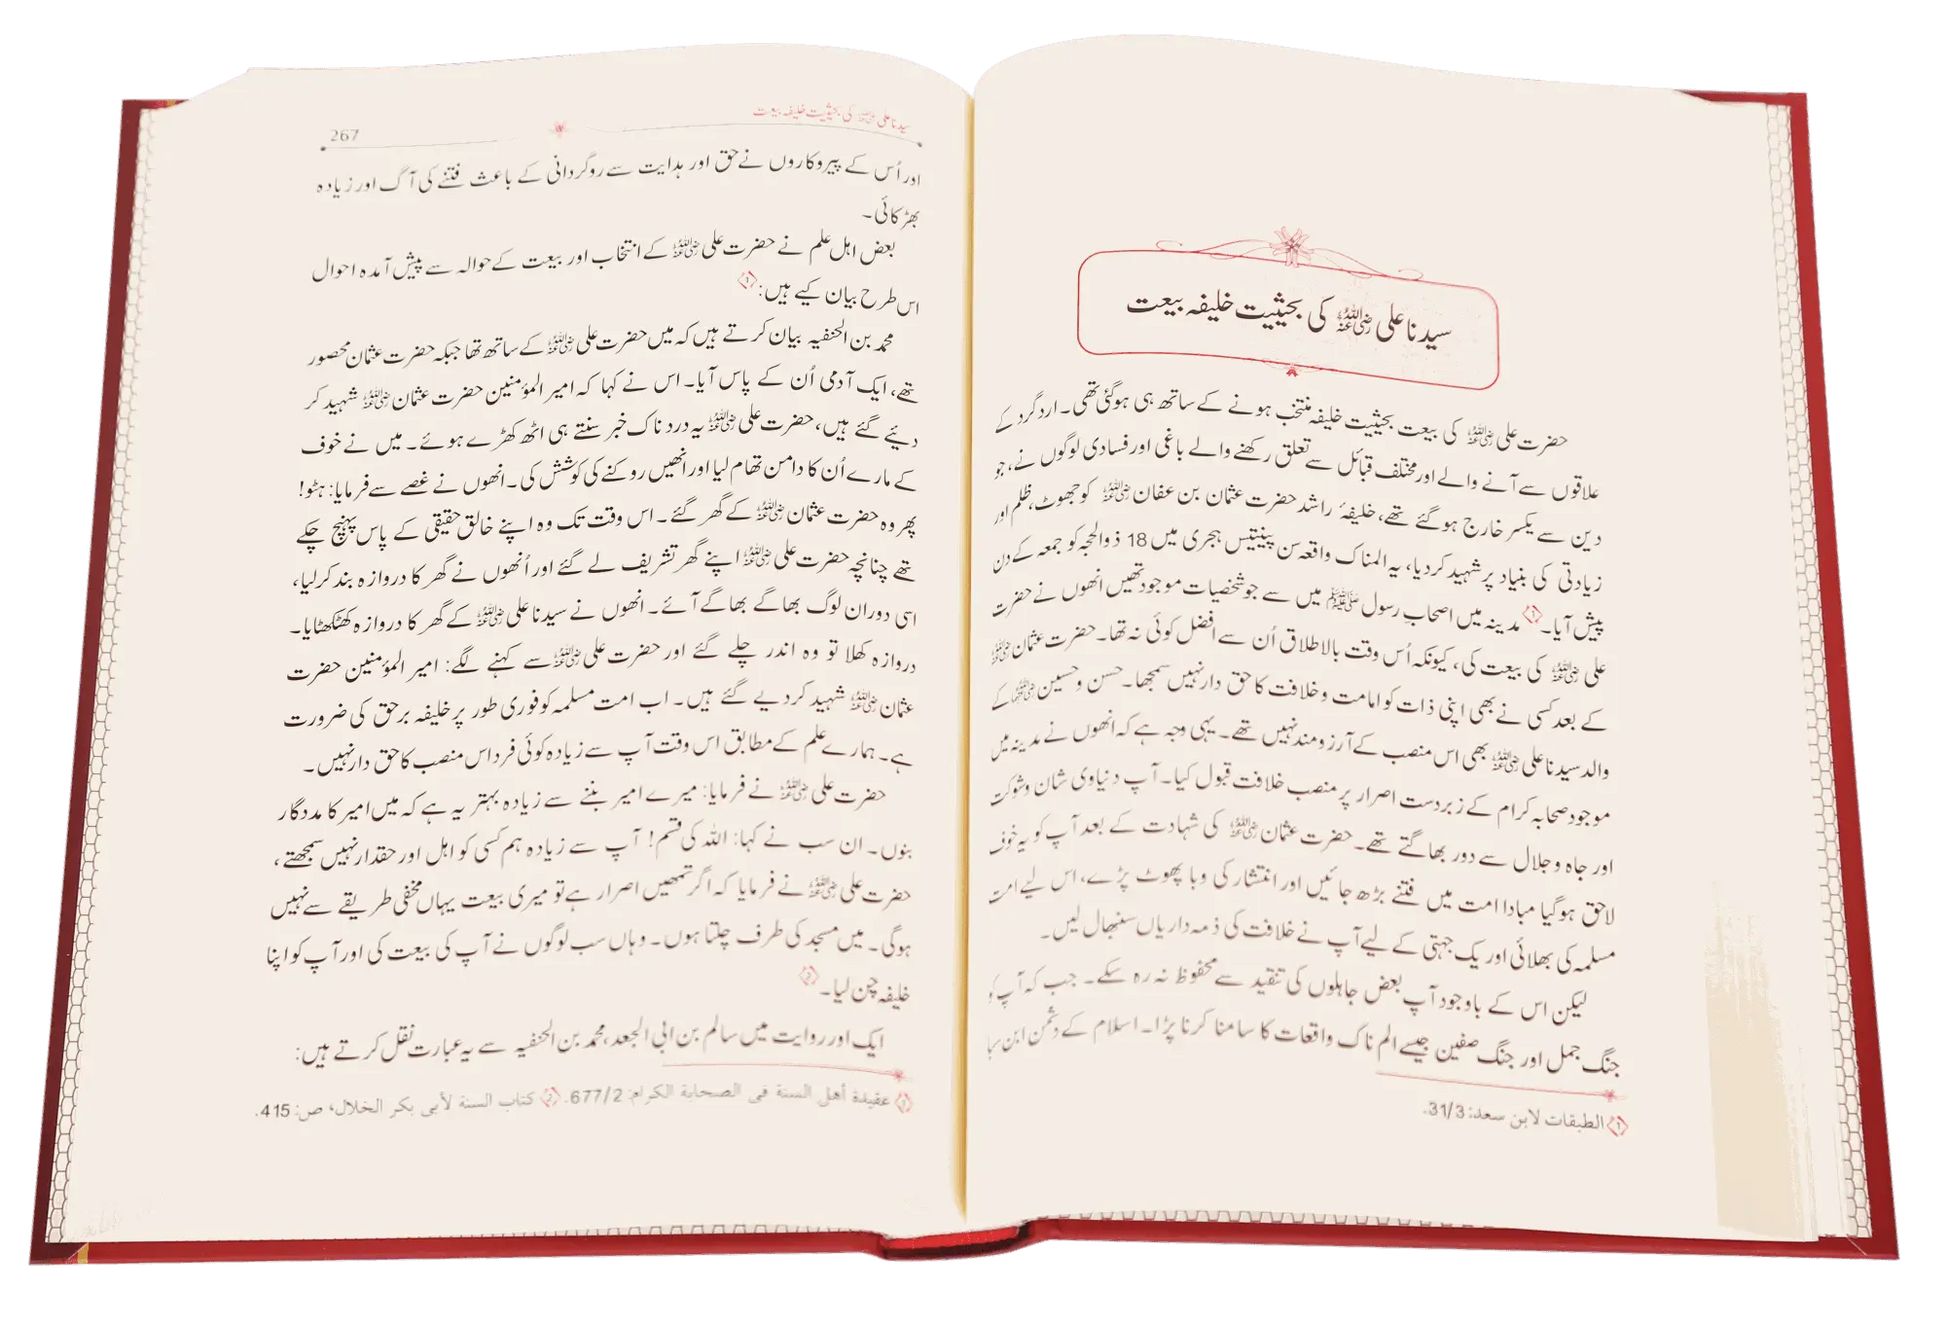 سیدنا علی رضی اللہ عنہ کی بحیثیت خلیفہ بیعت
حضرت علی رضی اللہ عنہ کی بیعت بحیثیت خلیفہ منتخب ہونے کے ساتھ ہی ہوگئی تھی۔ اردگرد کے
علاقوں سے آنے والے اور مختلف قبائل سے تعلق رکھنے والے باغی اور فسادی لوگوں نے، جو
دین سے یکسر خارج ہوگئے تھے، خلیفۂ راشد حضرت عثمان بن عفان رضی اللہ عنہ کو جھوٹ، ظلم اور
زیادتی کی بنیاد پر شہید کردیا، یہ المناک واقعہ سن پینتیس ہجری میں 18 ذوالحجہ کو جمعہ کے دن
پیش آیا۔ ① مدینہ میں اصحاب رسول ﷺ میں سے جو شخصیات موجود تھیں انھوں نے حضرت
علی رضی اللہ عنہ کی بیعت کی، کیونکہ اُس وقت بالاطلاق اُن سے افضل کوئی نہ تھا۔ حضرت عثمان رضی اللہ عنہ
کے بعد کسی نے بھی اپنی ذات کو امامت و خلافت کا حق دار نہیں سمجھا۔ حسن و حسین رضی اللہ عنہما کے
والد سیدنا علی رضی اللہ عنہ بھی اس منصب کے آرزومند نہیں تھے۔ یہی وجہ ہے کہ انھوں نے مدینہ میں
موجود صحابہ کرام کے زبردست اصرار پر منصب خلافت قبول کیا۔ آپ دنیاوی شان و شوکت
اور جاہ و جلال سے دور بھاگتے تھے۔ حضرت عثمان رضی اللہ عنہ کی شہادت کے بعد آپ کو یہ خوف
لاحق ہوگیا مبادا امت میں فتنے بڑھ جائیں اور انتشار کی وبا پھوٹ پڑے، اس لیے امت
مسلمہ کی بھلائی اور یک جہتی کے لیے آپ نے خلافت کی ذمہ داریاں سنبھال لیں۔
لیکن اس کے باوجود آپ بعض جاہلوں کی تنقید سے محفوظ نہ رہ سکے۔ جب کہ آپ کو
جنگ جمل اور جنگ صفین جیسے الم ناک واقعات کا سامنا کرنا پڑا۔ اسلام کے دشمن ابن سبا
① الطبقات لابن سعد: 31/3.
سیدنا علی رضی اللہ عنہ کی بحیثیت خلیفہ بیعت
267
اور اُس کے پیروکاروں نے حق اور ہدایت سے روگردانی کے باعث فتنے کی آگ اور زیادہ
بھڑکائی۔
بعض اہل علم نے حضرت علی رضی اللہ عنہ کے انتخاب اور بیعت کے حوالہ سے پیش آمدہ احوال
اس طرح بیان کیے ہیں: ①
محمد بن الحنفیہ بیان کرتے ہیں کہ میں حضرت علی رضی اللہ عنہ کے ساتھ تھا جبکہ حضرت عثمان محصور
تھے، ایک آدمی اُن کے پاس آیا۔ اس نے کہا کہ امیر المؤمنین حضرت عثمان رضی اللہ عنہ شہید کر
دیئے گئے ہیں، حضرت علی رضی اللہ عنہ یہ دردناک خبر سنتے ہی اٹھ کھڑے ہوئے۔ میں نے خوف
کے مارے اُن کا دامن تھام لیا اور انھیں روکنے کی کوشش کی۔ انھوں نے غصے سے فرمایا: ہٹو!
پھر وہ حضرت عثمان رضی اللہ عنہ کے گھر گئے۔ اس وقت تک وہ اپنے خالق حقیقی کے پاس پہنچ چکے
تھے چنانچہ حضرت علی رضی اللہ عنہ اپنے گھر تشریف لے گئے اور اُنھوں نے گھر کا دروازہ بند کرلیا،
اسی دوران لوگ بھاگے بھاگے آئے۔ انھوں نے سیدنا علی رضی اللہ عنہ کے گھر کا دروازہ کھٹکھٹایا۔
دروازہ کھلا تو وہ اندر چلے گئے اور حضرت علی رضی اللہ عنہ سے کہنے لگے: امیر المؤمنین حضرت
عثمان رضی اللہ عنہ شہید کردیے گئے ہیں۔ اب امت مسلمہ کو فوری طور پر خلیفہ برحق کی ضرورت
ہے۔ ہمارے علم کے مطابق اس وقت آپ سے زیادہ کوئی فرد اس منصب کا حق دار نہیں۔
حضرت علی رضی اللہ عنہ نے فرمایا: میرے امیر بننے سے زیادہ بہتر یہ ہے کہ میں امیر کا مددگار
بنوں۔ ان سب نے کہا: اللہ کی قسم! آپ سے زیادہ ہم کسی کو اہل اور حقدار نہیں سمجھتے،
حضرت علی رضی اللہ عنہ نے فرمایا کہ اگر تمھیں اصرار ہے تو میری بیعت یہاں مخفی طریقے سے نہیں
ہوگی۔ میں مسجد کی طرف چلتا ہوں۔ وہاں سب لوگوں نے آپ کی بیعت کی اور آپ کو اپنا
خلیفہ چن لیا۔ ②
ایک اور روایت میں سالم بن ابی الجعد، محمد بن الحنفیہ سے یہ عبارت نقل کرتے ہیں:
① عقيدة أهل السنة في الصحابة الكرام: 677/2. ② كتاب السنة لأبي بكر الخلال، ص: 415.